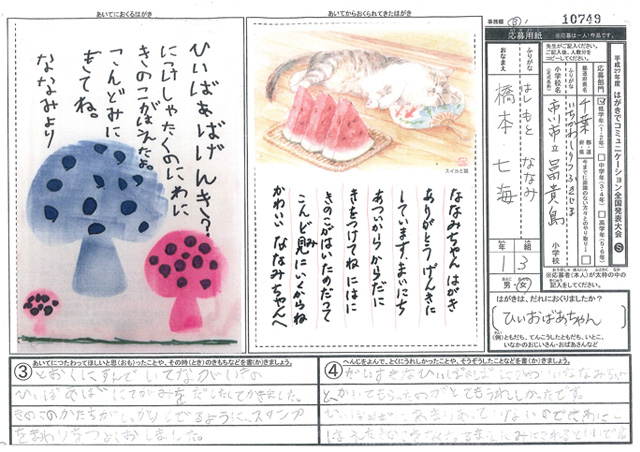 事務欄
10749
あいてにおくるはがき
ひいばぁばげんき?
にっけしゃたくのにわに
きのこがはえたよ。
こんどみに
きてね。
ななみより
あいてからおくられてきたはがき
スイカと猫
ななみちゃん はがき
ありがとう げんきに
しています。まいにち
あついからからだに
きをつけてね にはに
きのこがはいたのだって
こんど見にいくからね
み
かわいい ななみちゃんへ
平成27年度 はがきでコミュニケーション全国発表大会
応募用紙
※応募は一人一作品です。
先生がご記入ください。
お送りの際、人数分を
コピーしてください。
応募部門
低学年(1・2年)
中学年(3・4年)
高学年(5・6年)
都道府県名
千葉
都・道・府・県
ふりがな
小学校名
市川市立冨貴島
小学校
ふりがな
はしもと ななみ
おなまえ
橋本 七海
1年
3組
男・女
※応募者(本人)が太枠の中の
記入をしてください。
はがきは、だれにおくりましたか?
ひいおばあちゃん
(例)ともだち、てんこうしたともだち、いとこ、
いなかのおじいさん・おばあさんなど
あいてにつたわってほしいと思(おも)ったことや、その時(とき)のきもちなどを書(か)きましょう。
③
とおくにすんでいてながいきの
ひいばあばにてがみをだしたくてかきました。
きのこのかたちがしっかりでるように、スタンプ
をまわりをつよくおしました。
へんじをよんで、とくにうれしかったことや、そうぞうしたことなどを書(か)きましょう。
④